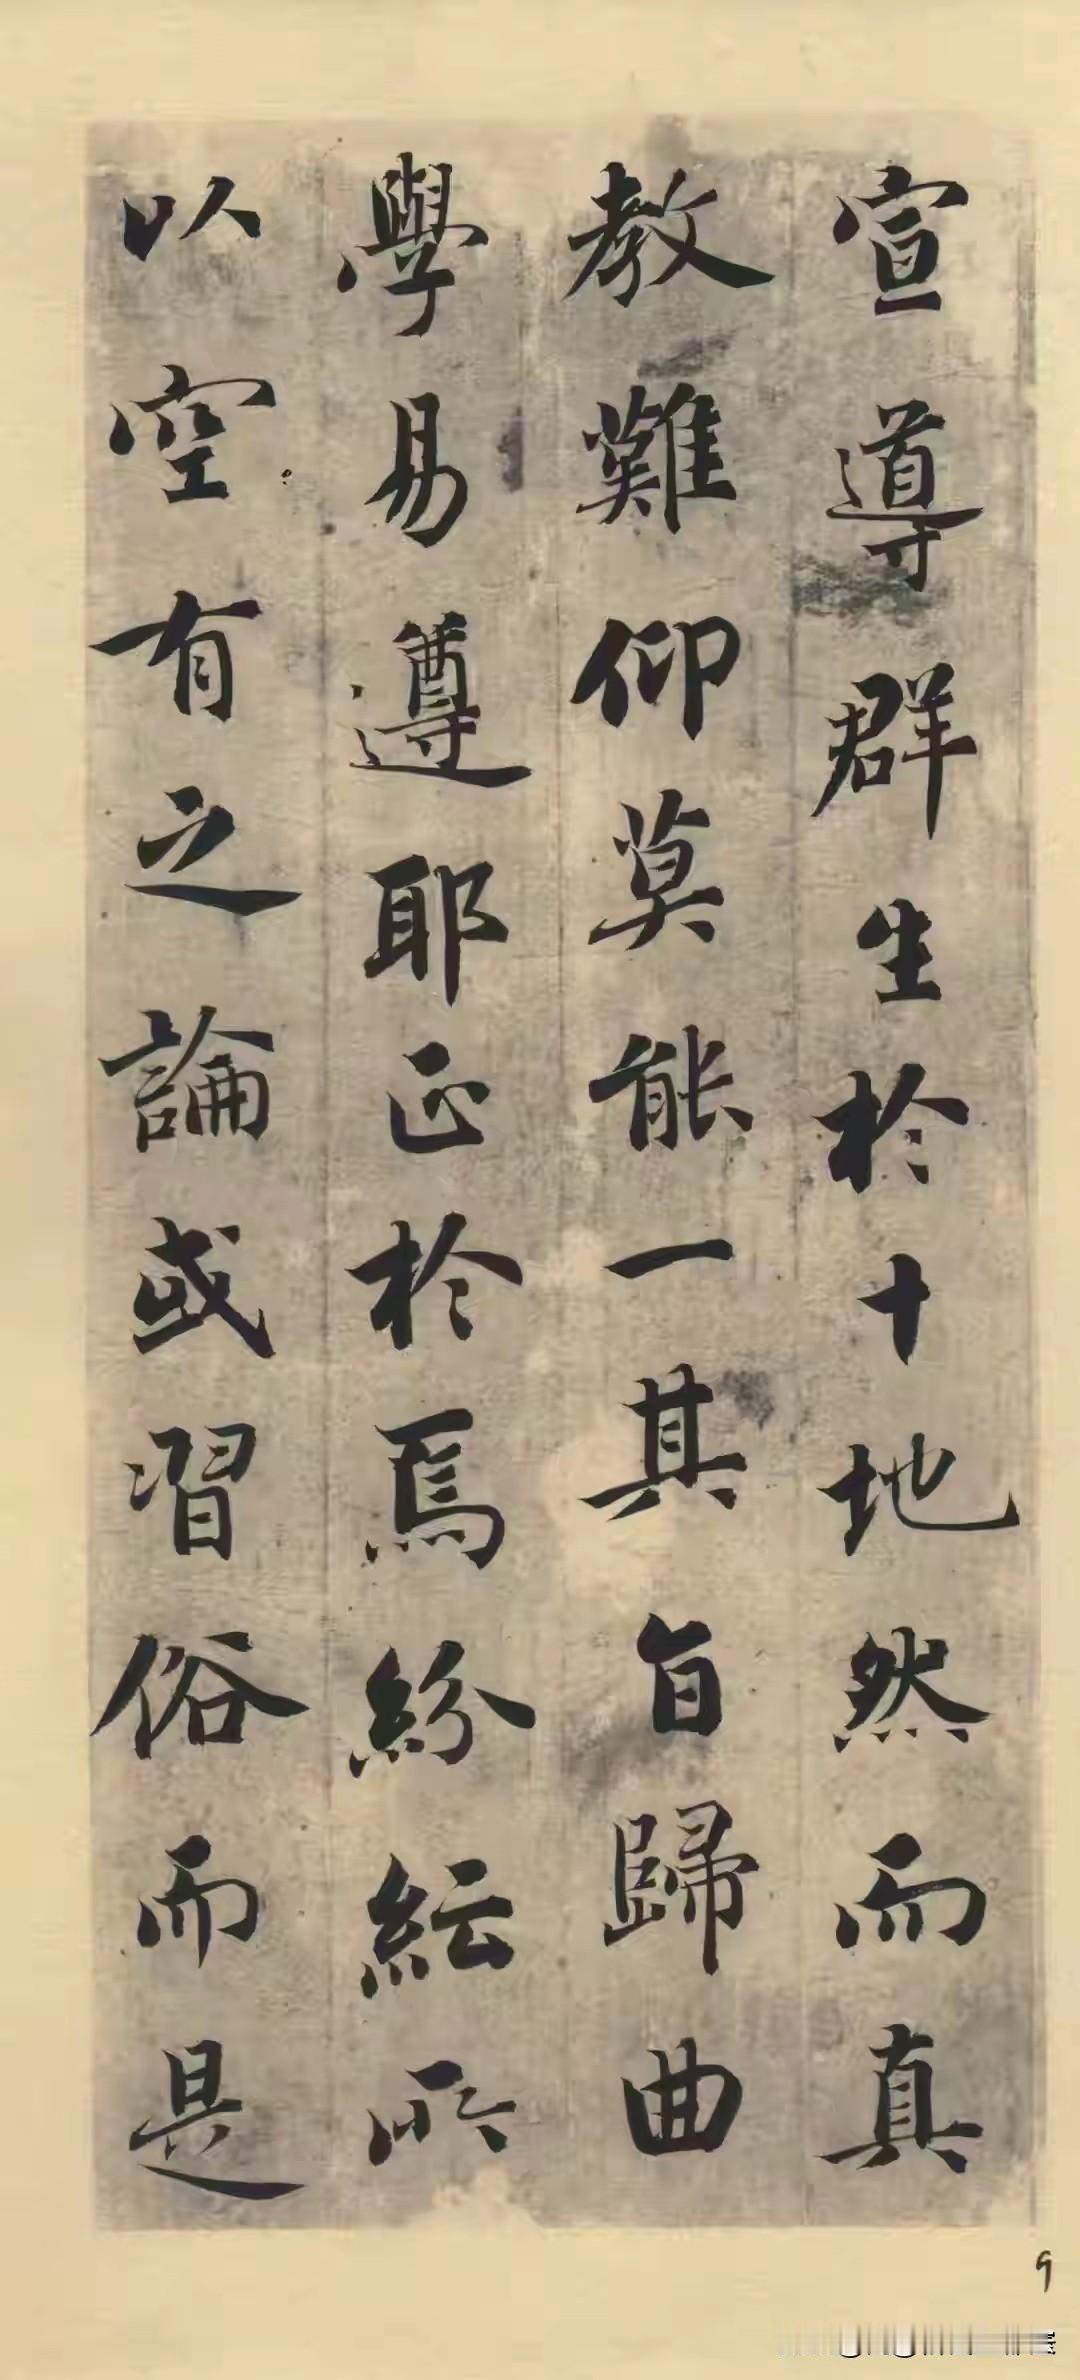 宣導群生於十地然而真
教難仰莫能一其旨歸曲
學易遵耶正於焉紛紜所
以空有之論或習俗而是
9